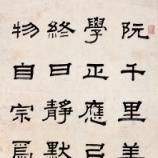 阮千里美
學正應
終日靜默
物自宗